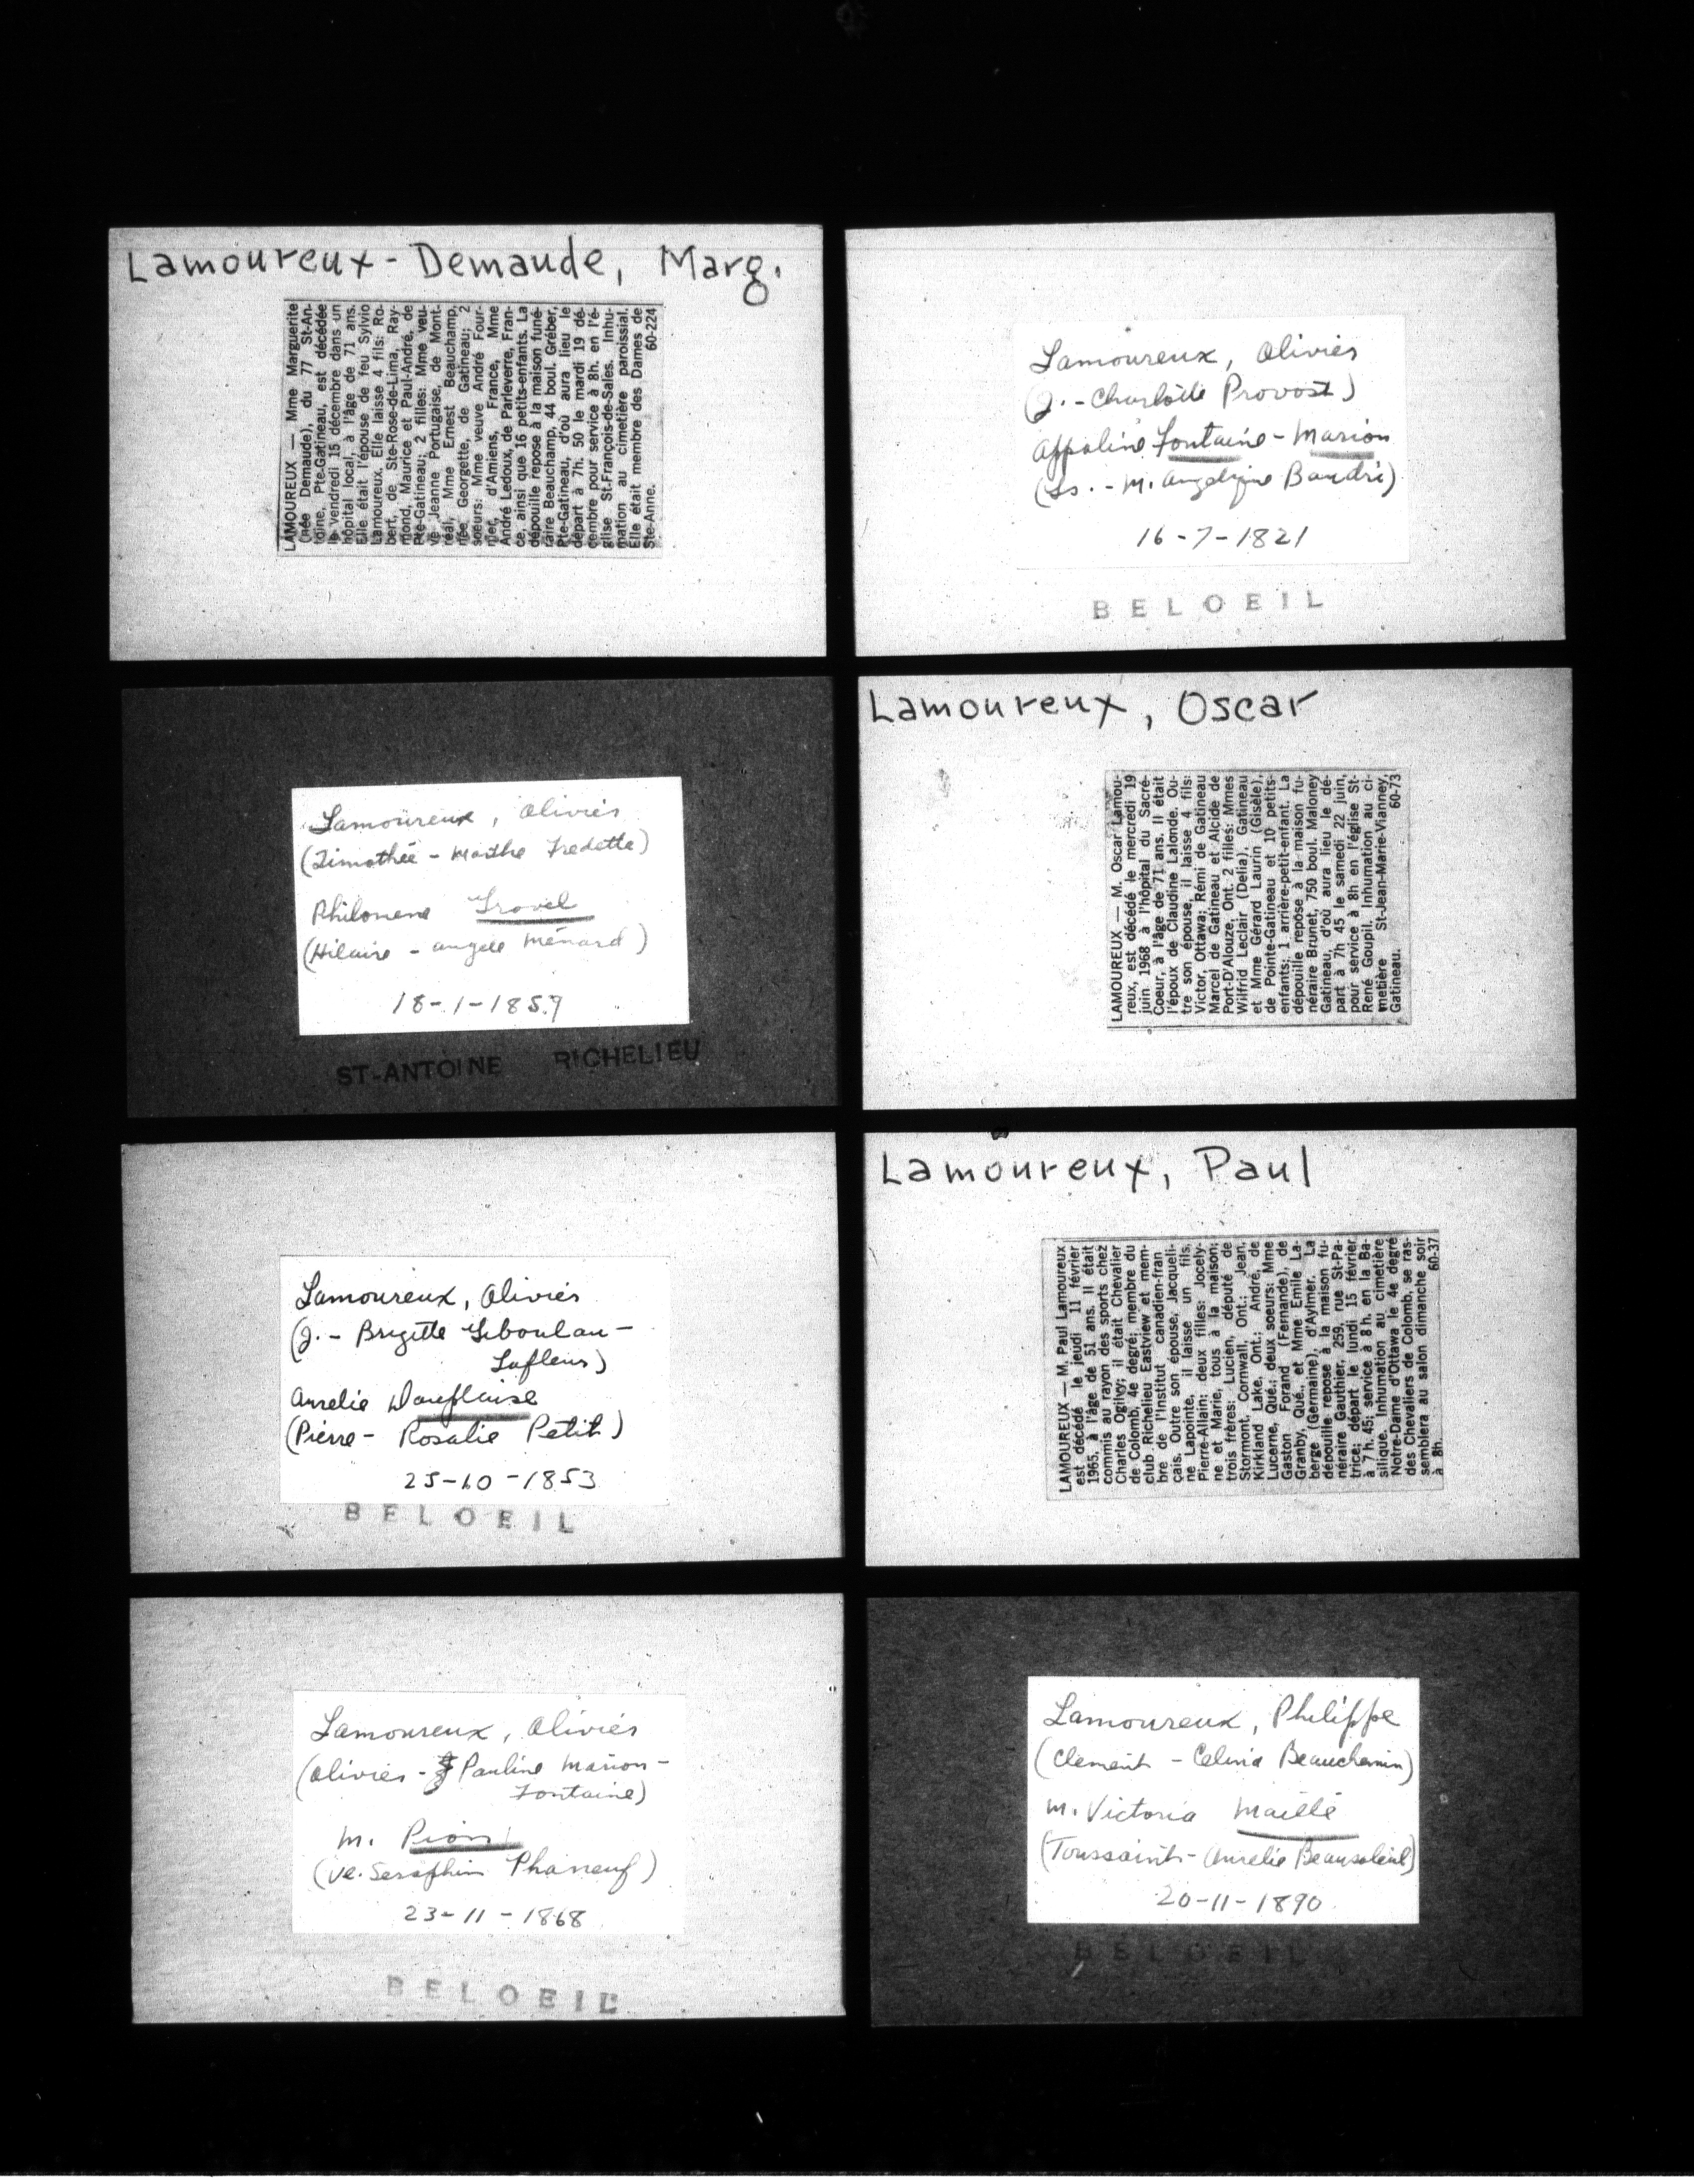 Lamoureux-Demaude, Marg.
LAMOUREUX — Mme Marguerite
(née Demaude), du 77 St-An-
toine, Pte-Gatineau, est décédée
le vendredi 15 décembre dans un
hôpital local, à l'âge de 71 ans.
Elle était l'épouse de feu Sylvio
Lamoureux. Elle laisse 4 fils: Ro-
bert, de Ste-Rose-de-Lima, Ray-
mond, Maurice et Paul-André, de
Pte-Gatineau; 2 filles: Mme veu-
ve Jeanne Portugaise, de Mont-
réal, Mme Ernest Beauchamp,
née Georgette, de Gatineau; 2
soeurs: Mme veuve André Four-
nier, d'Amiens, France, Mme
André Ledoux, de Parleverre, Fran-
ce, ainsi que 16 petits-enfants. La
dépouille repose à la maison funé-
raire Beauchamp, 44 boul. Gréber,
Pte-Gatineau, d'où aura lieu le
départ à 7h. 50 le mardi 19 dé-
cembre pour service à 8h. en l'é-
glise St-François-de-Sales. Inhu-
mation au cimetière paroissial.
Elle était membre des Dames de
Ste-Anne. 60-224
Lamoureux, Olivier
(J.-Charlotte Provost)
Appoline Fontaine-Marion
(Ls.-M. Angelique Baudri)
16-7-1821
BELOEIL
Lamoureux, Olivier
(Timothée - Marthe Fredette)
Philomene
(Hilaire - Angele Ménard)
18-1-1859
ST-ANTOINE RICHELIEU
Lamoureux, Oscar
LAMOUREUX — M. Oscar Lamou-
reux, est décédé le mercredi 19
juin 1968 à l'hôpital du Sacré-
Coeur, à l'âge de 71 ans. Il était
l'époux de Claudine Lalonde. Ou-
tre son épouse, il laisse 4 fils:
Victor, Ottawa; Rémi de Gatineau
Marcel de Gatineau et Alcide de
Port-D'Alouze, Ont. 2 filles: Mmes
Wilfrid Leclair (Delia), Gatineau
et Mme Gérard Laurin (Gisèle),
de Pointe-Gatineau et 10 petits-
enfants; 1 arrière-petit-enfant. La
dépouille repose à la maison fu-
néraire Brunet, 750 boul. Maloney
Gatineau, d'où aura lieu le dé-
part à 7h 45 le samedi 22 juin,
pour service à 8h en l'église St-
René Goupil. Inhumation au ci-
metière St-Jean-Marie-Vianney,
Gatineau. 60-73
Lamoureux, Olivier
(J. - Brigitte Liboulau-
Lafleur)
Aurelie
(Pierre - Rosalie Petit)
25-10-1853
BELOEIL
Lamoureux, Paul
LAMOUREUX — M. Paul Lamoureux
est décédé le jeudi 11 février
1965, à l'âge de 51 ans. Il était
commis au rayon des sports chez
Charles Ogilvy; il était Chevalier
de Colomb, 4e degré; membre du
club Richelieu Eastview et mem-
bre de l'Institut canadien-fran
çais. Outre son épouse, Jacqueli-
ne Lapointe, il laisse un fils,
Pierre-Allain; deux filles: Jocely-
ne et Marie, tous à la maison;
trois frères: Lucien, député de
Stormont, Cornwall, Ont.; Jean,
Kirkland Lake, Ont.; André, de
Lucerne, Qué.; deux soeurs: Mme
Gaston Forand (Fernande), de
Granby, Qué., et Mme Emile La-
berge (Germaine), d'Aylmer. La
dépouille repose à la maison fu-
néraire Gauthier, 259, rue St-Pa-
trice; départ le lundi 15 février
à 7 h. 45; service à 8 h. en la Ba-
silique. Inhumation au cimetière
Notre-Dame d'Ottawa le 4e degré
des Chevaliers de Colomb, se ras-
semblera au salon dimanche soir
à 8h. 60-37
Lamoureux, Olivier
(Olivier - Pauline Marion-
Fontaine)
M. Pion
(ve. Seraphin Phaneuf)
23-11-1868
BELOEIL
Lamoureux, Philippe
(Clement - Celina Beauchemin)
M. Victoria Maillé
(Toussaint - Aurelie Beausoleil)
20-11-1890
BELOEIL